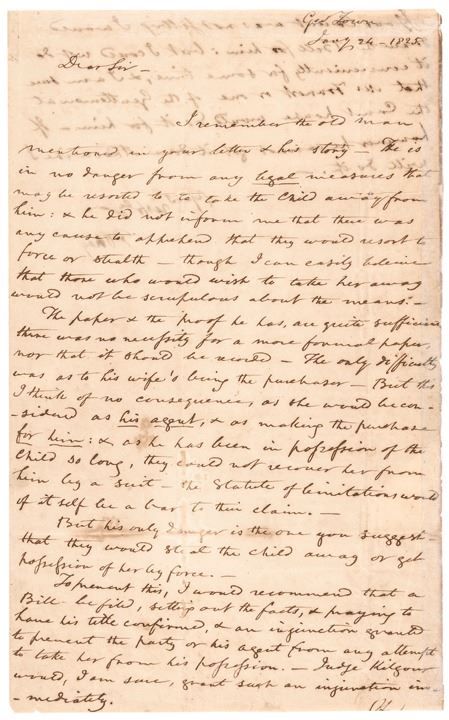 Geo Town
Jany 24 - 1825.
Dear Sir -
I remember the old man
mentioned in your letter & his story - He is
in no danger from any legal measures that
may be resorted to to take the Child away from
him: & he did not inform me that there was
any cause to apprehend that they would resort to
force or stealth - though I can easily believe
that those who would wish to take her away
would not be scrupulous about the means. -
The paper & the proof he has, are quite sufficient
there was no necessity for a more formal paper,
nor that it should be record - The only difficulty
was as to his wife's being the purchaser - But this
I think of no consequence, as she would be con-
-sidered as his agent, & as making the purchase
for him: & as he has been in possession of the
Child so long, they could not recover her from
him by a suit - the Statute of limitations would
of itself be a bar to their claim. -
But his only danger is the one you suggest -
that they would steal the child away or get
possession of her by force. -
To prevent this, I would recommend that a
Bill be filed, setting out the facts, & praying to
have his title confirmed, & an injunction granted
to prevent the party or his agent from any attempt
to take her from his possession. - Judge Kilgour
would, I am sure, grant such an injunction im-
-mediately.